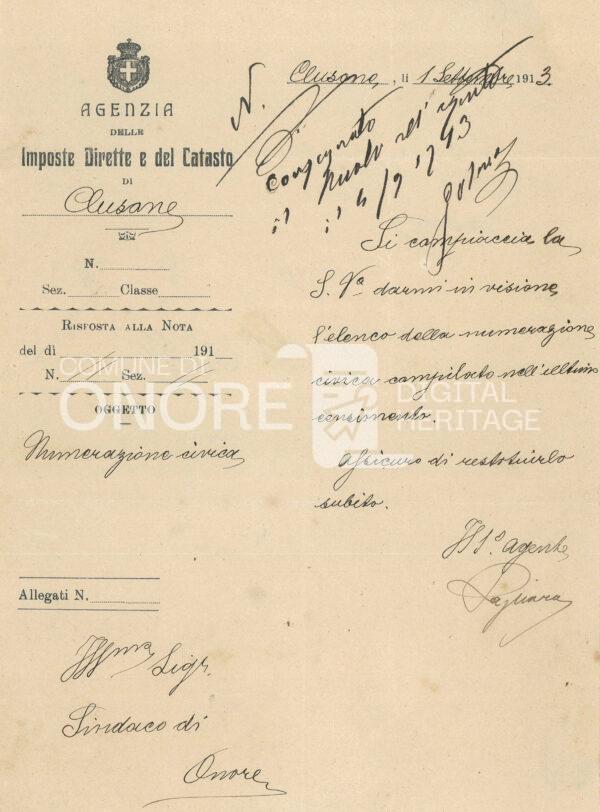 AGENZIA
DELLE
Imposte Dirette e del Catasto
DI
Clusone
N.
Sez. Classe
RISPOSTA ALLA NOTA
del dì 191
N. Sez.
OGGETTO
Numerazione civica
Allegati N.
Ill.mo Sigr.
Sindaco di
Onore
Clusone, li 1 Settembre 1913.
N.
Consegnato
il ruolo all'
il 4/9 1913
Si compiaccia la
S. Va darmi in visione
l'elenco della numerazione
civica compilato nell'ultimo
censimento.
Assicuro di restituirlo
subito.
Il 1º agente
Pagliara
COMUNE DI
ONORE
DIGITAL
HERITAGE